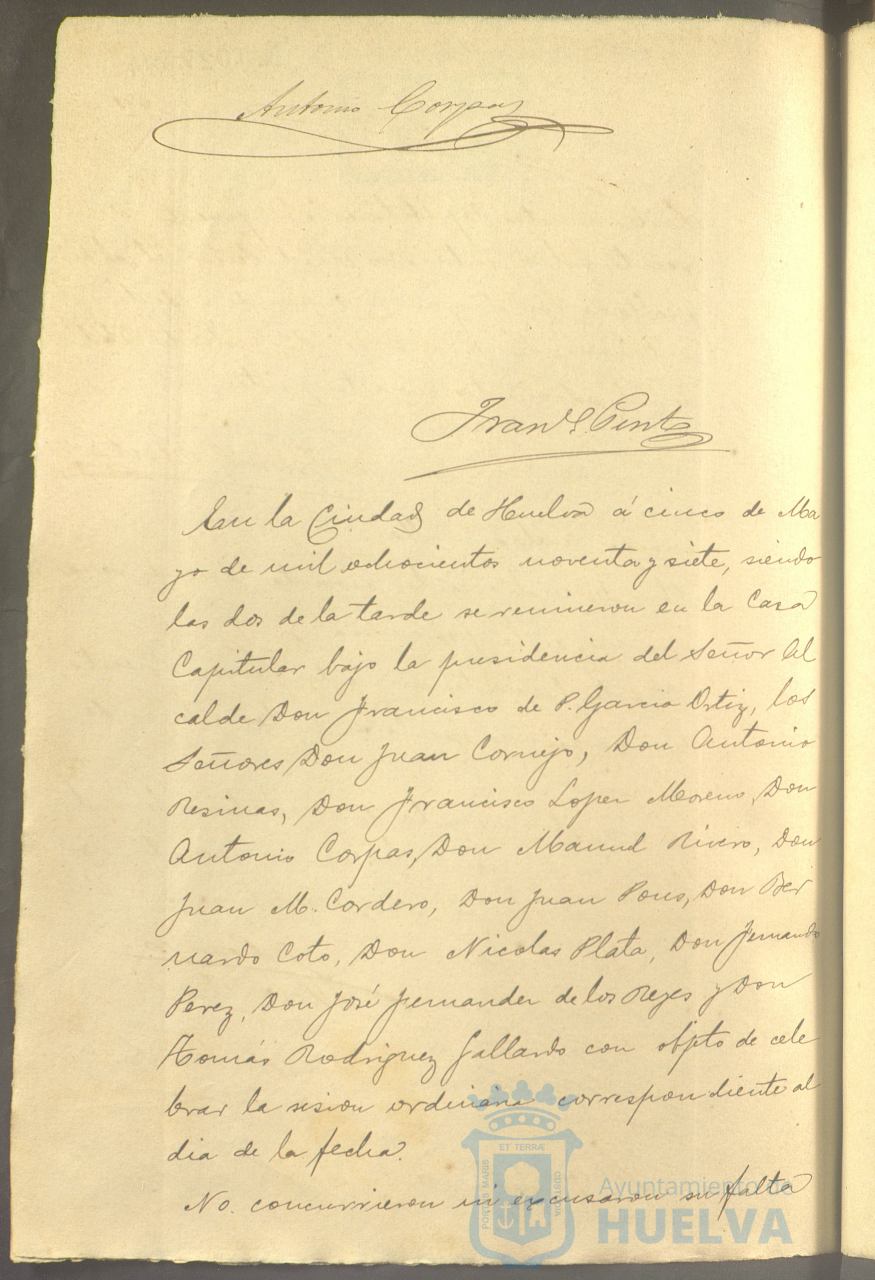 Antonio Corpas
En la Ciudad de Huelva á cinco de Ma
yo de mil ochocientos noventa y siete, siendo
las dos de la tarde se reunieron en la Casa
Capitular bajo la presidencia del Señor Al
calde Don Francisco de P. Garcia Ortiz, los
Señores Don Juan Cornejo, Don Antonio
Resinas, Don Francisco Lopez Moreno, Don
Antonio Corpas, Don Manuel Rivero, Don
Juan M. Cordero, Don Juan Pons, Don Ber
nardo Coto, Don Nicolas Plata, Don Fernando
Perez, Don José Fernander de los Reyes y Don
Tomás Rodriguez Gallardo con objeto de cele
brar la sesion ordinaria correspondiente al
dia de la fecha.
No concurrieron ni excusaron su falta
PORTUS MARIS
ET TERRÆ
CUSTODIA
Ayuntamiento de
HUELVA